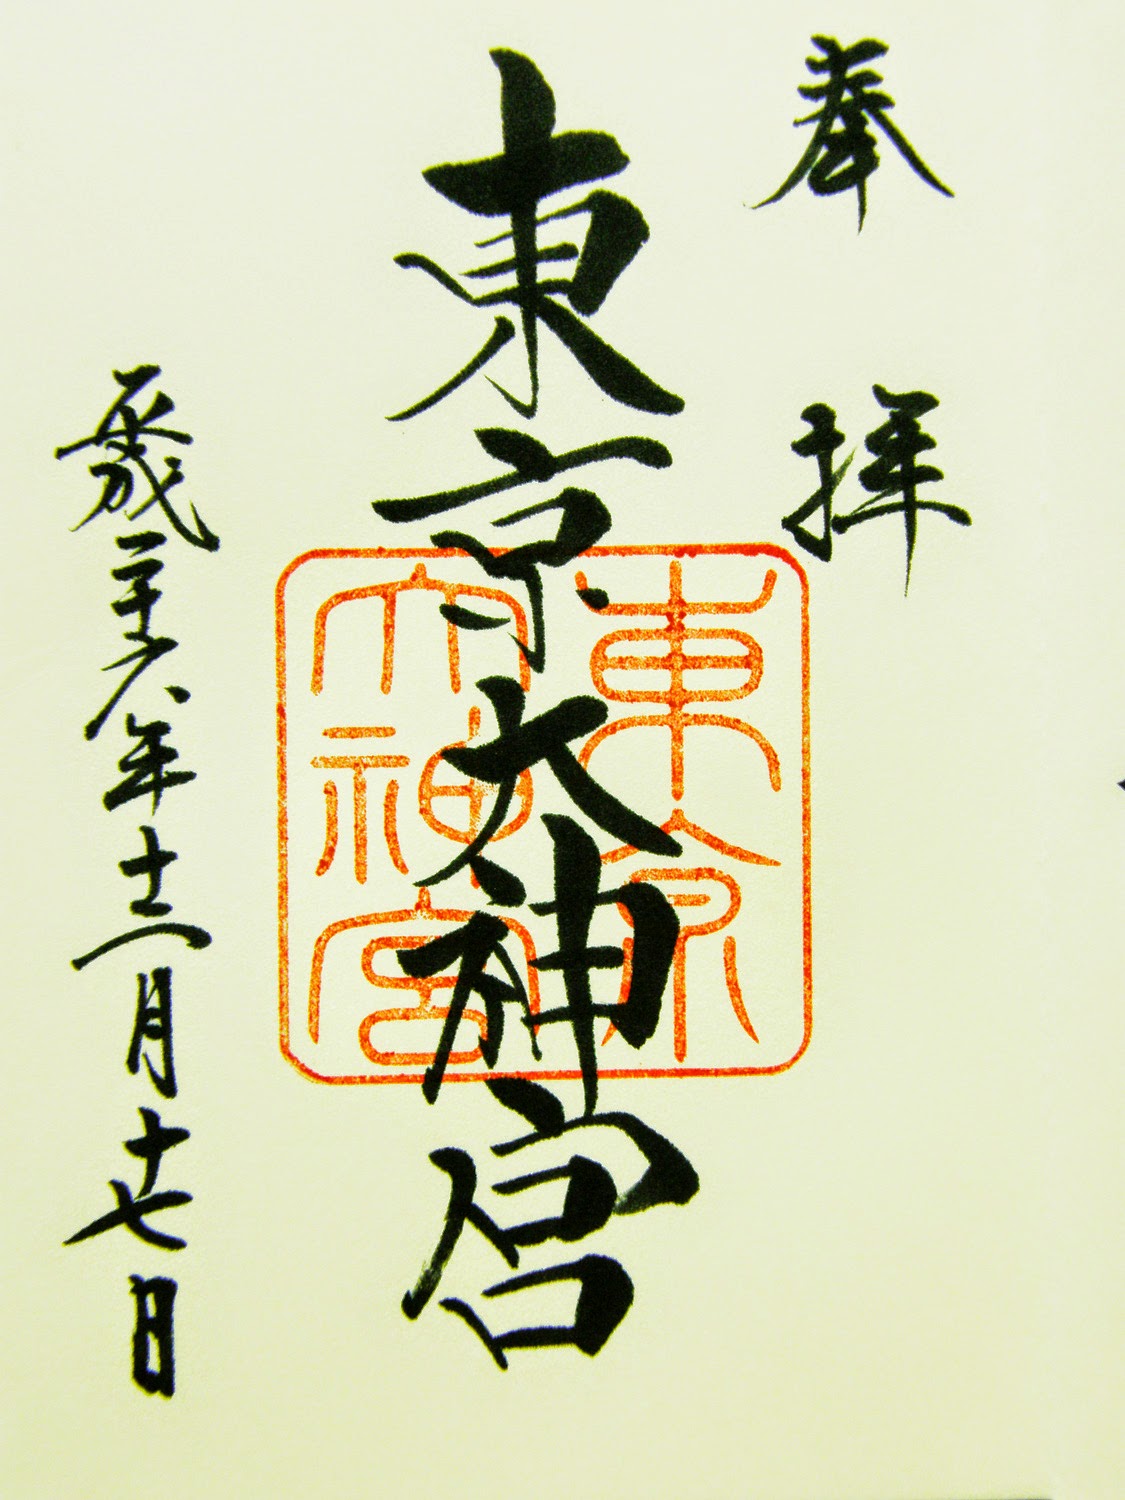 奉拝
東京大神宮
東京
大神宮
平成二十六年十二月十七日